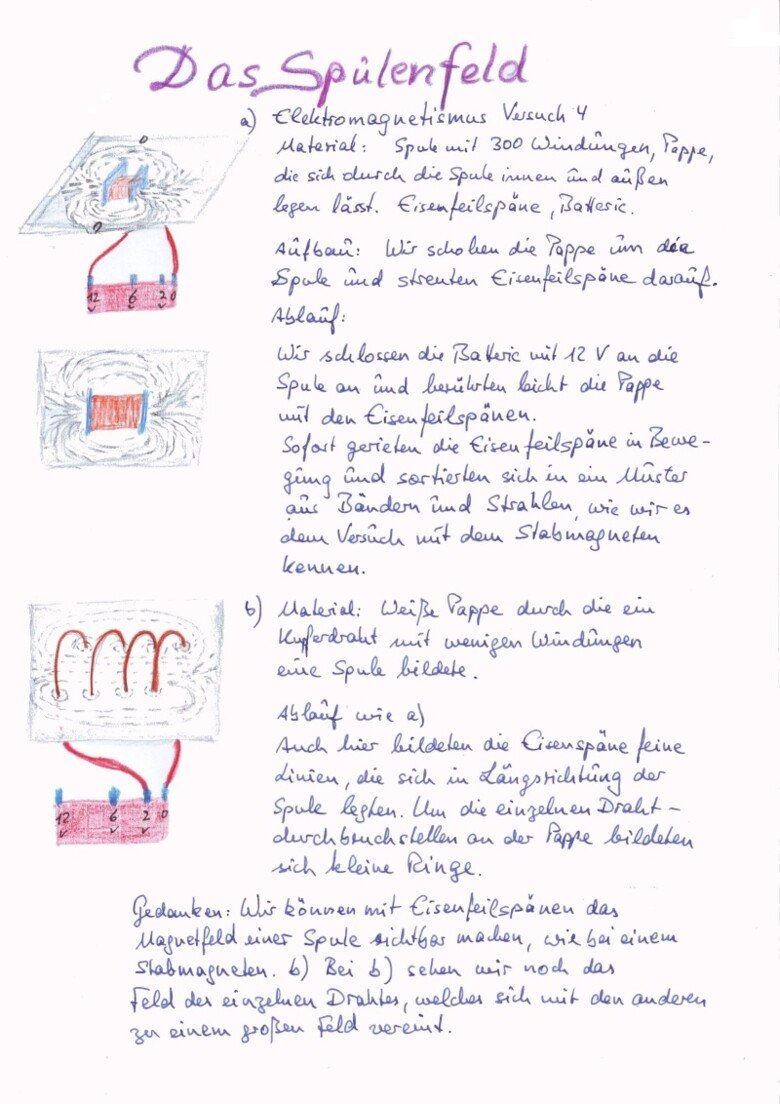 Das Spulenfeld
a) Elektromagnetismus Versuch 4
Material: Spule mit 300 Windungen, Pappe,
die sich durch die Spule innen und außen
legen lässt. Eisenfeilspäne, Batterie.
Aufbau: Wir schoben die Pappe um die
Spule und streuten Eisenfeilspäne darauf.
Ablauf:
12 6 2 0
Wir schlossen die Batterie mit 12 V an die
Spule an und berührten leicht die Pappe
mit den Eisenfeilspänen.
Sofort gerieten die Eisenfeilspäne in Bewe-
gung und sortierten sich in ein Muster
aus Bändern und Strahlen, wie wir es
dem Versuch mit dem Stabmagneten
kennen.
b) Material: Weiße Pappe durch die ein
Kupferdraht mit wenigen Windungen
eine Spule bildete.
Ablauf wie a)
Auch hier bildeten die Eisenspäne feine
Linien, die sich in Längsrichtung der
Spule legten. Um die einzelnen Draht-
durchbruchstellen an der Pappe bildeten
sich kleine Ringe.
12 6 2 0
Gedanken: Wir können mit Eisenfeilspänen das
Magnetfeld einer Spule sichtbar machen, wie bei einem
Stabmagneten. b) Bei b) sehen wir noch das
Feld des einzelnen Drahtes, welches sich mit den anderen
zu einem großen Feld vereint.